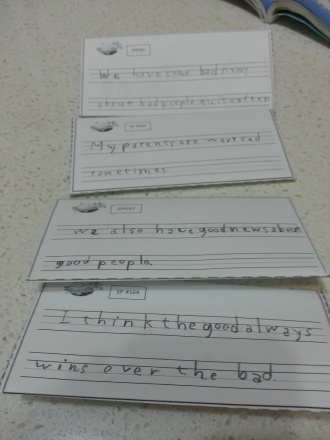 We have some bad news
about bad people
My parents are worried
sometimes.
we also have good news about
good people.
SP #164
I think the good always
wins over the bad